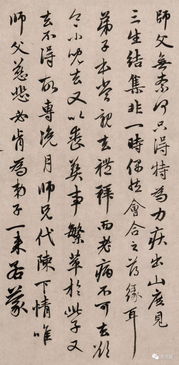 師父無奈何只得特為力疾出山庶見
三生結集非一時偶然會合之薄緣耳
弟子本當親去禮拜而老病不可去欲
令小兒去又以喪葬事繁萃於此子又
去不得故專浼月師兄代陳下情唯
師父慈悲必肯為弟子一來若蒙